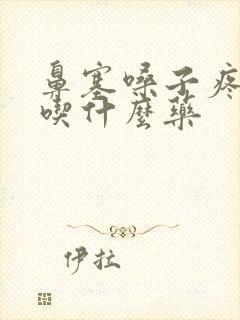 鼻塞嗓子疼
喫什麼藥
伊拉